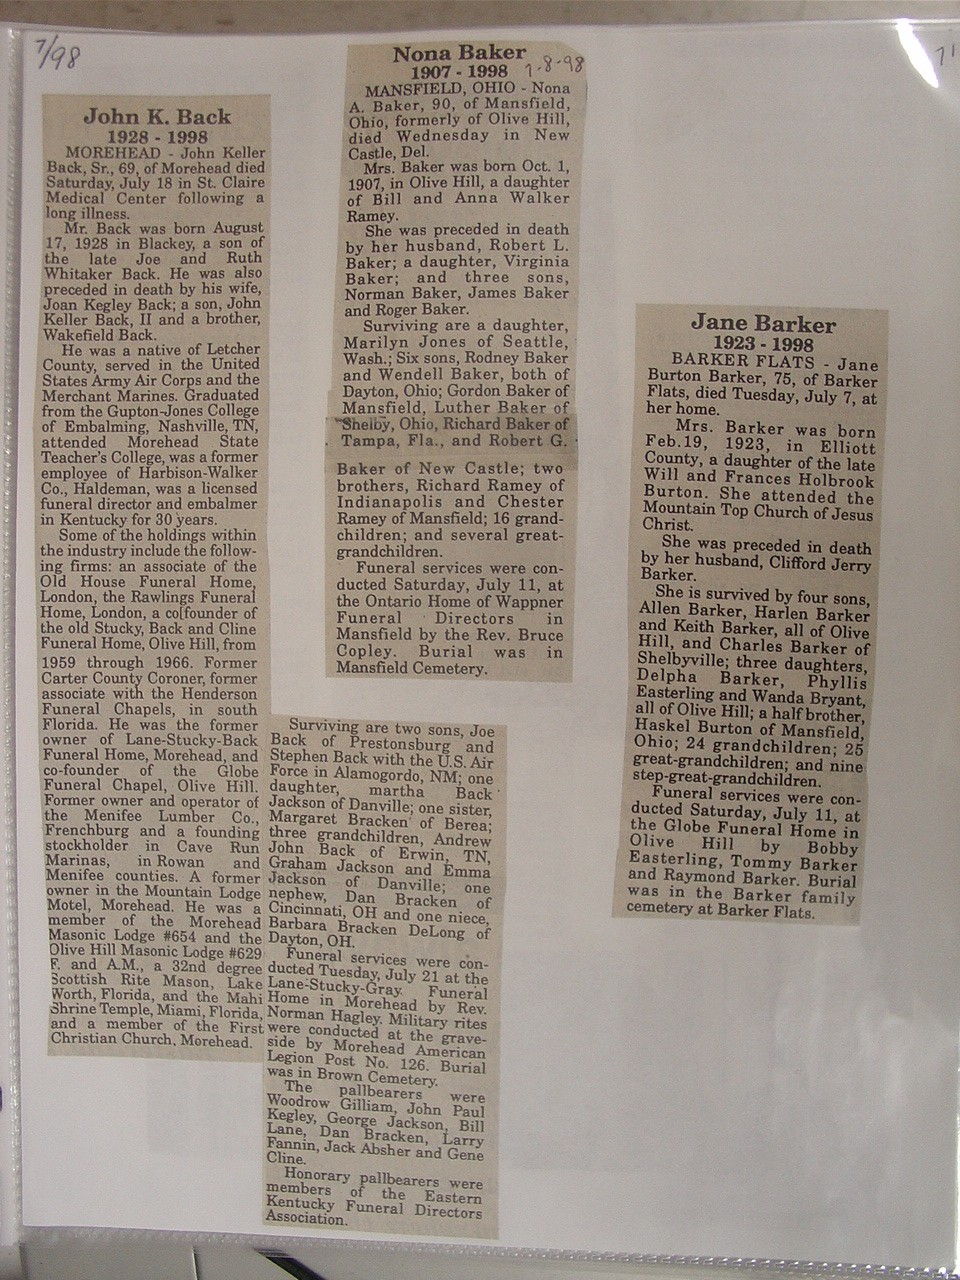 7/98
John K. Back
1928 - 1998
MOREHEAD - John Keller
Back, Sr., 69, of Morehead died
Saturday, July 18 in St. Claire
Medical Center following a
long illness.
Mr. Back was born August
17, 1928 in Blackey, a son of
the late Joe and Ruth
Whitaker Back. He was also
preceded in death by his wife,
Joan Kegley Back; a son, John
Keller Back, II and a brother,
Wakefield Back.
He was a native of Letcher
County, served in the United
States Army Air Corps and the
Merchant Marines. Graduated
from the Gupton-Jones College
of Embalming, Nashville, TN,
attended Morehead State
Teacher's College, was a former
employee of Harbison-Walker
Co., Haldeman, was a licensed
funeral director and embalmer
in Kentucky for 30 years.
Some of the holdings within
the industry include the follow-
ing firms: an associate of the
Old House Funeral Home,
London, the Rawlings Funeral
Home, London, a co[founder of
the old Stucky, Back and Cline
Funeral Home, Olive Hill, from
1959 through 1966. Former
Carter County Coroner, former
associate with the Henderson
Funeral Chapels, in south
Florida. He was the former
owner of Lane-Stucky-Back
Funeral Home, Morehead, and
co-founder of the Globe
Funeral Chapel, Olive Hill.
Former owner and operator of
the Menifee Lumber Co.,
Frenchburg and a founding
stockholder in Cave Run
Marinas, in Rowan and
Menifee counties. A former
owner in the Mountain Lodge
Motel, Morehead. He was a
member of the Morehead
Masonic Lodge #654 and the
Olive Hill Masonic Lodge #629
F. and A.M., a 32nd degree
Scottish Rite Mason, Lake
Worth, Florida, and the Mahi
Shrine Temple, Miami, Florida,
and a member of the First
Christian Church, Morehead.
Surviving are two sons, Joe
Back of Prestonsburg and
Stephen Back with the U.S. Air
Force in Alamogordo, NM; one
daughter, martha Back
Jackson of Danville; one sister,
Margaret Bracken of Berea;
three grandchildren, Andrew
John Back of Erwin, TN,
Graham Jackson and Emma
Jackson of Danville; one
nephew, Dan Bracken of
Cincinnati, OH and one niece,
Barbara Bracken DeLong of
Dayton, OH.
Funeral services were con-
ducted Tuesday, July 21 at the
Lane-Stucky-Gray Funeral
Home in Morehead by Rev.
Norman Hagley. Military rites
were conducted at the grave-
side by Morehead American
Legion Post No. 126. Burial
was in Brown Cemetery.
The pallbearers were
Woodrow Gilliam, John Paul
Kegley, George Jackson, Bill
Lane, Dan Bracken, Larry
Fannin, Jack Absher and Gene
Cline.
Honorary pallbearers were
members of the Eastern
Kentucky Funeral Directors
Association.
Nona Baker
1907 - 1998 7-8-98
MANSFIELD, OHIO - Nona
A. Baker, 90, of Mansfield,
Ohio, formerly of Olive Hill,
died Wednesday in New
Castle, Del.
Mrs. Baker was born Oct. 1,
1907, in Olive Hill, a daughter
of Bill and Anna Walker
Ramey.
She was preceded in death
by her husband, Robert L.
Baker; a daughter, Virginia
Baker; and three sons,
Norman Baker, James Baker
and Roger Baker.
Surviving are a daughter,
Marilyn Jones of Seattle,
Wash.; Six sons, Rodney Baker
and Wendell Baker, both of
Dayton, Ohio; Gordon Baker of
Mansfield, Luther Baker of
Shelby, Ohio, Richard Baker of
Tampa, Fla., and Robert G.
Baker of New Castle; two
brothers, Richard Ramey of
Indianapolis and Chester
Ramey of Mansfield; 16 grand-
children; and several great-
grandchildren.
Funeral services were con-
ducted Saturday, July 11, at
the Ontario Home of Wappner
Funeral Directors in
Mansfield by the Rev. Bruce
Copley. Burial was in
Mansfield Cemetery.
Jane Barker
1923 - 1998
BARKER FLATS - Jane
Burton Barker, 75, of Barker
Flats, died Tuesday, July 7, at
her home.
Mrs. Barker was born
Feb.19, 1923, in Elliott
County, a daughter of the late
Will and Frances Holbrook
Burton. She attended the
Mountain Top Church of Jesus
Christ.
She was preceded in death
by her husband, Clifford Jerry
Barker.
She is survived by four sons,
Allen Barker, Harlen Barker
and Keith Barker, all of Olive
Hill, and Charles Barker of
Shelbyville; three daughters,
Delpha Barker, Phyllis
Easterling and Wanda Bryant,
all of Olive Hill; a half brother,
Haskel Burton of Mansfield,
Ohio; 24 grandchildren; 25
great-grandchildren; and nine
step-great-grandchildren.
Funeral services were con-
ducted Saturday, July 11, at
the Globe Funeral Home in
Olive Hill by Bobby
Easterling, Tommy Barker
and Raymond Barker. Burial
was in the Barker family
cemetery at Barker Flats.